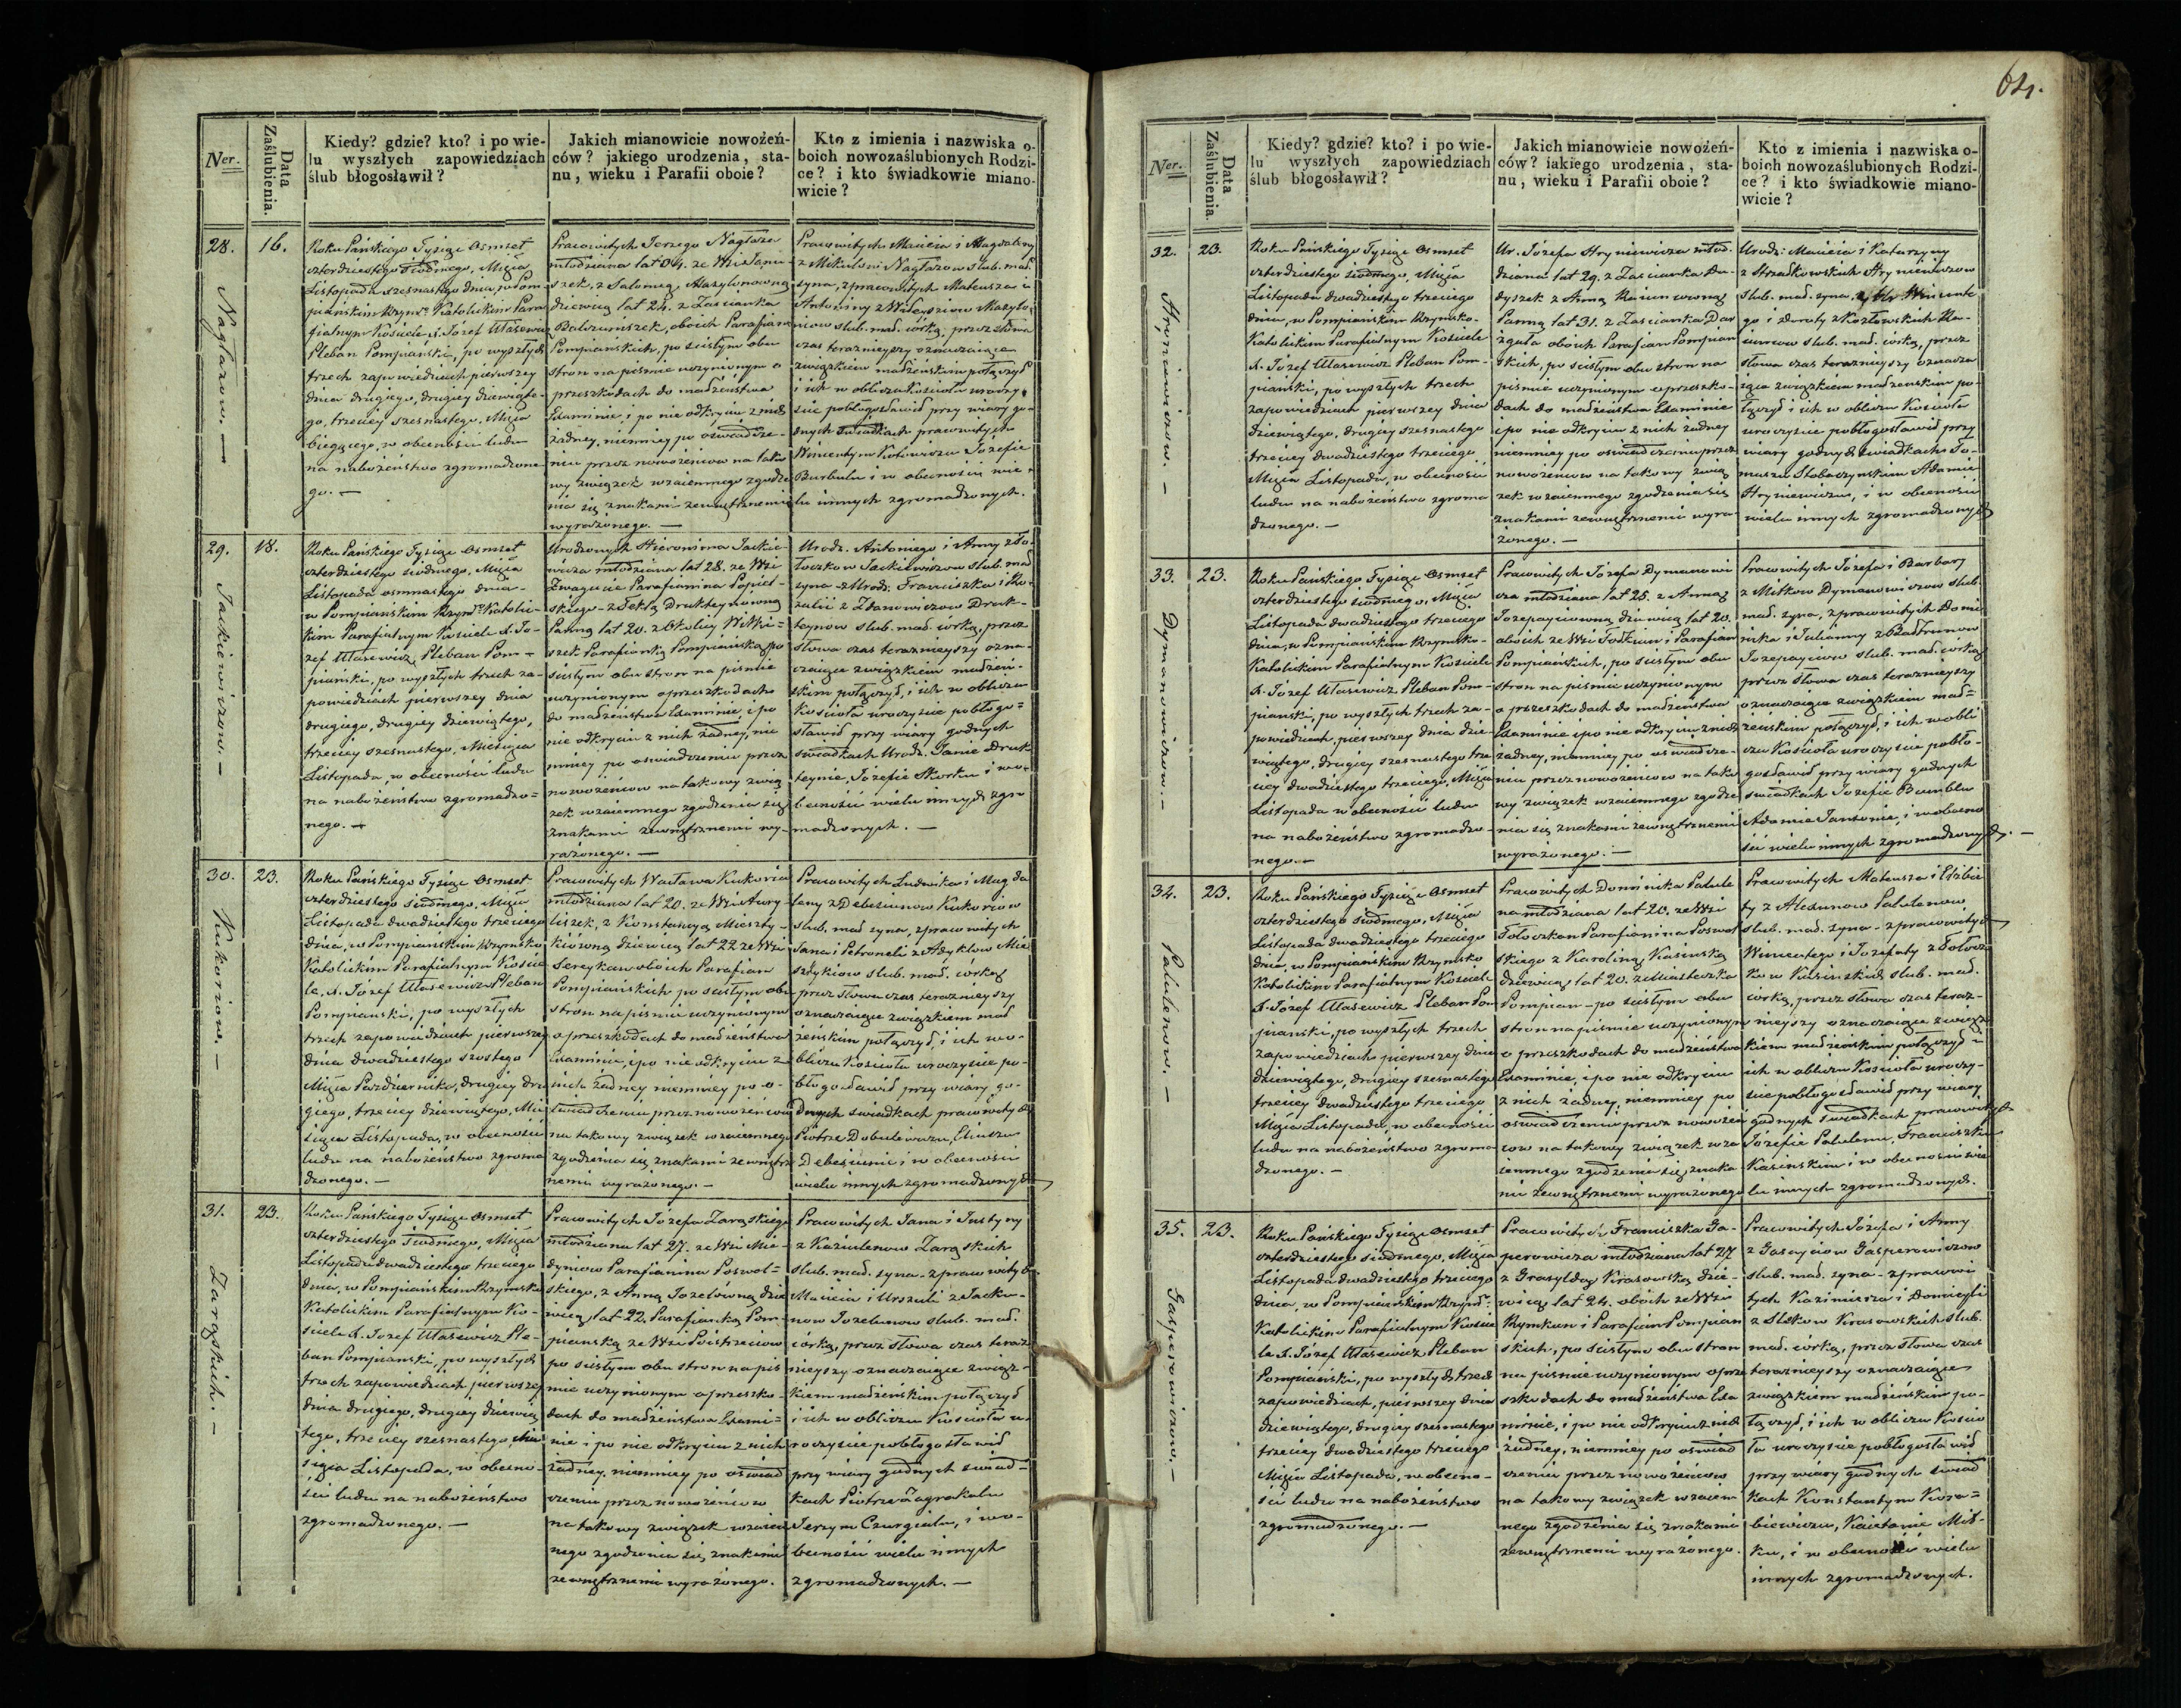 64.
Ner.
Data
Zaślubienia.
Kiedy? gdzie? kto? i po wie-
lu wyszłych zapowiedziach
ślub błogosławił?
Jakich mianowicie nowożeń-
ców? jakiego urodzenia, sta-
nu, wieku i Parafii oboie?
Kto z imienia i nazwiska o-
boich nowozaślubionych Rodzi-
ce? i kto świadkowie miano-
wicie?
28.
16.
Roku Pańskiego Tysiąc Osmset
czterdziestego siodmego, Mięsia
Listopada szesnastego dnia, w Pom-
piańskim Rzym: Katolickim Para
fialnym Kosciele X. Jozef Ułasewicz
Pleban Pompiański, po wyszłych
trzech zapowiedziach pierwszey
dnia drugiego, drugiey dziewiąte-
go, trzeciey szesnastego, Mięsia
biegącego, w obecności ludu
na nabożeństwo zgromadzone
go. —
Pracowitych Jerzego
młodziana lat 34. ze Wsi
szek, z Salomeą
dziewicą lat 24. z Zascianka
oboich Parafian
Pompiańskich, po scisłym obu
stron na pismie uczynionym o
przeszkodach do małżeństwa
Examinie, i po nie odkryciu z nich
żadney, niemniey po oswiadcze-
niu przez nowożeńcow na tako
wy związek wzaiemnego zgodze
nia się znakami zewnętrznemi
wyrażonego. —
Pracowitych Macieia i Magdaleny
z Mikulow slub. mał.
syna, z pracowitych Mateusza i
Antoniny
slub. mał. corką, przez słowa
czas teraznieyszy oznaczaiące
związkiem małżenskim połączył
i ich w obliczu Koscioła uroczy-
scie pobłogosławił przy wiary go-
dnych swiadkach pracowitych
Wincentym Jozefie
Burbulu i w obecności wie-
lu innych zgromadzonych.
29.
18.
Jackiewiczow. —
Roku Pańskiego Tysiąc Osmset
czterdziestego siodmego, Mięsia
Listopada osmnastego dnia
w Pompiańskim Rzym: Katolic-
kim Parafialnym Kosciele X. Jo-
zef Ułasewicz, Pleban Pom-
piański, po wyszłych trzech za-
powiedziach pierwszey dnia
drugiego, drugiey dziewiątego,
trzeciey szesnastego, Miesiąca
Listopada, w obecności ludu
na nabożeństwo zgromadzo-
nego. —
Urodzonych Hieronima Jackie-
wicza młodziana lat 28. ze Wsi
Parafianina Popiel-
skiego — z Teklą
Panną lat 20. z Okolicy
szek Parafianką Pompiańską, po
scisłym obu stron na pismie
uczynionym o przeszkodach
do małżeństwa Examinie i po
nie odkryciu z nich żadney, nie
mniey po oswiadczeniu przez
nowożeńcow na takowy zwią
zek wzaiemnego zgodzenia się
znakami zewnętrznemi wy-
rażonego. —
Urodz. Antoniego i Anny
Jackiewiczow slub. mał
syna — z Urodz. Franciszka i Ro-
zalii z Zdanowiczow
slub. mał. corką, przez
słowa czas teraznieyszy ozna-
czaiące związkiem małżeń-
skim połączył, i ich w obliczu
Koscioła uroczyscie pobłogo-
sławił przy wiary godnych
swiadkach Urodz. Janie
Jozefie i w o-
becności wielu innych zgro
madzonych. —
30.
23.
Roku Pańskiego Tysiąc Osmset
czterdziestego siodmego, Mięsia
Listopada dwadziestego trzeciego
dnia, w Pompiańskim Rzymsko
Katolickim Parafialnym Koscie
le, X. Jozef Ułasewicz Pleban
Pompiański, po wyszłych
trzech zapowiedziach pierwszey
dnia dwadziestego szostego
Mięsia Pazdziernika, drugiey dru
giego, trzeciey dziewiątego, Mie
siąca Listopada, w obecności
ludu na nabożeństwo zgroma
dzonego. —
Pracowitych Wacława
młodziana lat 20. ze Wsi
liszek, z Konstancyą
dziewicą lat 22 ze Wsi
oboich Parafian
Pompiańskich po scisłym obu
stron na pismie uczynionym
o przeszkodach do małżeństwa
Examinie, i po nie odkryciu z
nich żadney niemniey po o-
swiadczeniu przez nowożeńcow
na takowy związek wzaiemnego
zgodzenia się znakami zewnętrz
nemi wyrażonego. —
Pracowitych Ludwika i Magda
leny
slub. mał syna, z pracowitych
Jana i Petroneli
slub. mał. corką
przez słowa czas teraznieyszy
oznaczaiące związkiem mał
żeńskim połączył, i ich w o-
bliczu Koscioła uroczyscie po-
błogosławił przy wiary go-
dnych swiadkach pracowitych
Piotrze
i w obecnosci
wielu innych zgromadzonych
31.
23.
Roku Pańskiego Tysiąc Osmset
czterdziestego siodmego, Mięsia
Listopada dwadziestego trzeciego
dnia, w Pompiańskim Rzymsko
Katolickim Parafialnym Ko-
sciele X. Jozef Ułasewicz Ple-
ban Pompiański, po wyszłych
trzech zapowiedziach pierwszey
dnia drugiego, drugiey dziewią
tego, trzeciey szesnastego, Mie
siąca Listopada, w obecno-
ści ludu na nabożeństwo
zgromadzonego. —
Pracowitych Jozefa
młodziana lat 27. ze Wsi
Parafianina Poswol-
skiego, z Anną dzie
wicą lat 22. Parafianką Pom-
piańską ze Wsi
po scisłym obu stron na pis
mie uczynionym o przeszko-
dach do małżeństwa Exami-
nie i po nie odkryciu z nich
żadney, niemniey po oswiad
czeniu przez nowożeńcow
na takowy związek wzaiem
nego zgodzenia się znakami
zewnętrznemi wyrażonego.
Pracowitych Jana i Justyny
slub. mał. syna — z pracowitych
Macieia i Urszuli
slub. mał.
corką, przez słowa czas teraz
nieyszy oznaczaiące związ-
kiem małżeńskim połączył
i ich w obliczu Koscioła u-
roczyscie pobłogosławił
przy wiary godnych swiad-
kach Piotrze
Jerzym i w o-
becności wielu innych
zgromadzonych. —
Ner.
Data
Zaślubienia.
Kiedy? gdzie? kto? i po wie-
lu wyszłych zapowiedziach
ślub błogosławił?
Jakich mianowicie nowożeń-
ców? iakiego urodzenia, sta-
nu, wieku i Parafii oboie?
Kto z imienia i nazwiska o-
boich nowozaślubionych Rodzi-
ce? i kto świadkowie miano-
wicie?
32.
23.
Hryniewiczow. —
Roku Pańskiego Tysiąc Osmset
czterdziestego siodmego, Mięsia
Listopada dwadziestego trzeciego
dnia, w Pompiańskim Rzymsko-
Katolickim Parafialnym Kosciele
X. Jozef Ułasewicz Pleban Pom-
piański, po wyszłych trzech
zapowiedziach pierwszey dnia
dziewiątego, drugiey szesnastego
trzeciey dwadziestego trzeciego
Mięsia Listopada, w obecności
ludu na nabożeństwo zgroma
dzonego. —
Ur. Jozefa Hryniewicza mło-
dziana lat 29. z Zascianka
z Anną
Panną lat 31. z Zascianka
oboich Parafian Pompian
skich, po scisłym obu stron na
pismie uczynionym o przeszko-
dach do małżeństwa Examinie
i po nie odkryciu z nich żadney
niemniey po oswiadczeniu przez
nowożeńcow na takowy zwią
zek wzaiemnego zgodzenia się
znakami zewnętrznemi wyra-
żonego. —
Urodz: Macieia i Katarzyny
Hryniewiczow
slub. mał. syna, z Ur. Wincente
go i z Kozłowskich
slub. mał. corką, przez
słowa czas teraznieyszy oznacza
iące związkiem małżeńskim po-
łączył i ich w obliczu Koscioła
uroczyscie pobłogosławił przy
wiary godnych swiadkach To-
maszu Adamie
Hryniewiczu, i w obecności
wielu innych zgromadzonych
33.
23.
Dymanowiczow. —
Roku Pańskiego Tysiąc Osmset
czterdziestego siodmego, Mięsia
Listopada dwadziestego trzeciego
dnia, w Pompiańskim Rzymsko-
Katolickim Parafialnym Kosciele
X. Jozef Ułasewicz Pleban Pom-
pianski, po wyszłych trzech za-
powiedziach, pierwszey dnia dzie-
wiątego, drugiey szesnastego trze
ciey dwadziestego trzeciego, Mięsia
Listopada w obecności ludu
na nabożeństwo zgromadzo-
nego. —
Pracowitych Jozefa Dymanowi
cza młodziana lat 25. z Anną
dziewicą lat 20.
oboich ze Wsi i Parafian
Pompiańskich, po scisłym obu
stron na pismie uczynionym
o przeszkodach do małżeństwa
Examinie i po nie odkryciu z nich
żadney, niemniey po oswiadcze-
niu przez nowożeńcow na tako
wy związek wzaiemnego zgodze
nia się znakami zewnętrznemi
wyrażonego. —
Pracowitych Jozefa i Barbary
z Mitkow Dymanowiczow slub.
mał. syna, z pracowitych Domi
nika i Julianny
slub. mał. corką
przez słowa czas teraznieyszy
oznaczaiące związkiem mał-
żeńskim połączył, i ich w obli
czu Koscioła uroczyscie pobło-
gosławił przy wiary godnych
swiadkach Jozefie
Adamie i w obecno
ści wielu innych zgromadzonych. —
34.
23.
Roku Pańskiego Tysiąc Osmset
czterdziestego siodmego, Mięsia
Listopada dwadziestego trzeciego
dnia, w Pompiańskim Rzymsko
Katolickim Parafialnym Kosciele
X. Jozef Ułasewicz Pleban Pom
pianski, po wyszłych trzech
zapowiedziach pierwszey dnia
dziewiątego, drugiey szesnastego
trzeciey dwadziestego trzeciego
Mięsia Listopada, w obecności
ludu na nabożeństwo zgroma
dzonego. —
Pracowitych Dominika
na młodziana lat 20. ze Wsi
Parafianina Poswol
skiego z Karoliną Kasinską
dziewicą lat 20. z Miasteczka
Pompian — po scisłym obu
stron na pismie uczynionym
o przeszkodach do małżeństwa
Examinie, i po nie odkryciu
z nich żadney, niemniey po
oswiadczeniu przez nowożeń
cow na takowy związek wza
iemnego zgodzenia się znaka
mi zewnętrznemi wyrażonego
Pracowitych Mateusza i Elżbie
ty
slub. mał. syna — z pracowitych
Wincentego i Jozefaty
Kasinskich slub. mał.
corką, przez słowa czas teraz-
nieyszy oznaczaiące związ
kiem małżeńskim połączył i
ich w obliczu Koscioła uroczy-
scie pobłogosławił przy wiary
godnych swiadkach pracowitych
Jozefie Franciszku
Kasinskim i w obecnosci wie
lu innych zgromadzonych.
35.
23.
Gasperowiczow. —
Roku Pańskiego Tysiąc Osmset
czterdziestego siodmego, Mięsia
Listopada dwadziestego trzeciego
dnia, w Pompiańskim Rzym:
Katolickim Parafialnym Koscie
le X. Jozef Ułasewicz Pleban
Pompiański, po wyszłych trzech
zapowiedziach, pierwszey dnia
dziewiątego, drugiey szesnastego
trzeciey dwadziestego trzeciego
Mięsia Listopada, w obecno-
ści ludu na nabożeństwo
zgromadzonego. —
Pracowitych Franciszka Ga-
sperowicza młodziana lat 27
z Grasyldą Krasowską dzie-
wicą lat 24. oboich ze Wsi
i Parafian Pompian
skich, po scisłym obu stron
na pismie uczynionym o prze
szkodach do małżeństwa Exa
minie, i po nie odkryciu z nich
żadney, niemniey po oswiad
czeniu przez nowożeńcow
na takowy związek wzaiem
nego zgodzenia się znakami
zewnętrznemi wyrażonego.
Pracowitych Jozefa i Anny
Gasperowiczow
slub. mał. syna — z pracowi
tych Kazimierza i Domicelli
Krasowskich slub.
mał. corką, przez słowa czas
teraznieyszy oznaczaiące
związkiem małżeńskim po-
łączył, i ich w obliczu Koscio
ła uroczyscie pobłogosławił
przy wiary godnych swiad
kach Konstantym
Kaietanie
i w obecności wielu
innych zgromadzonych.